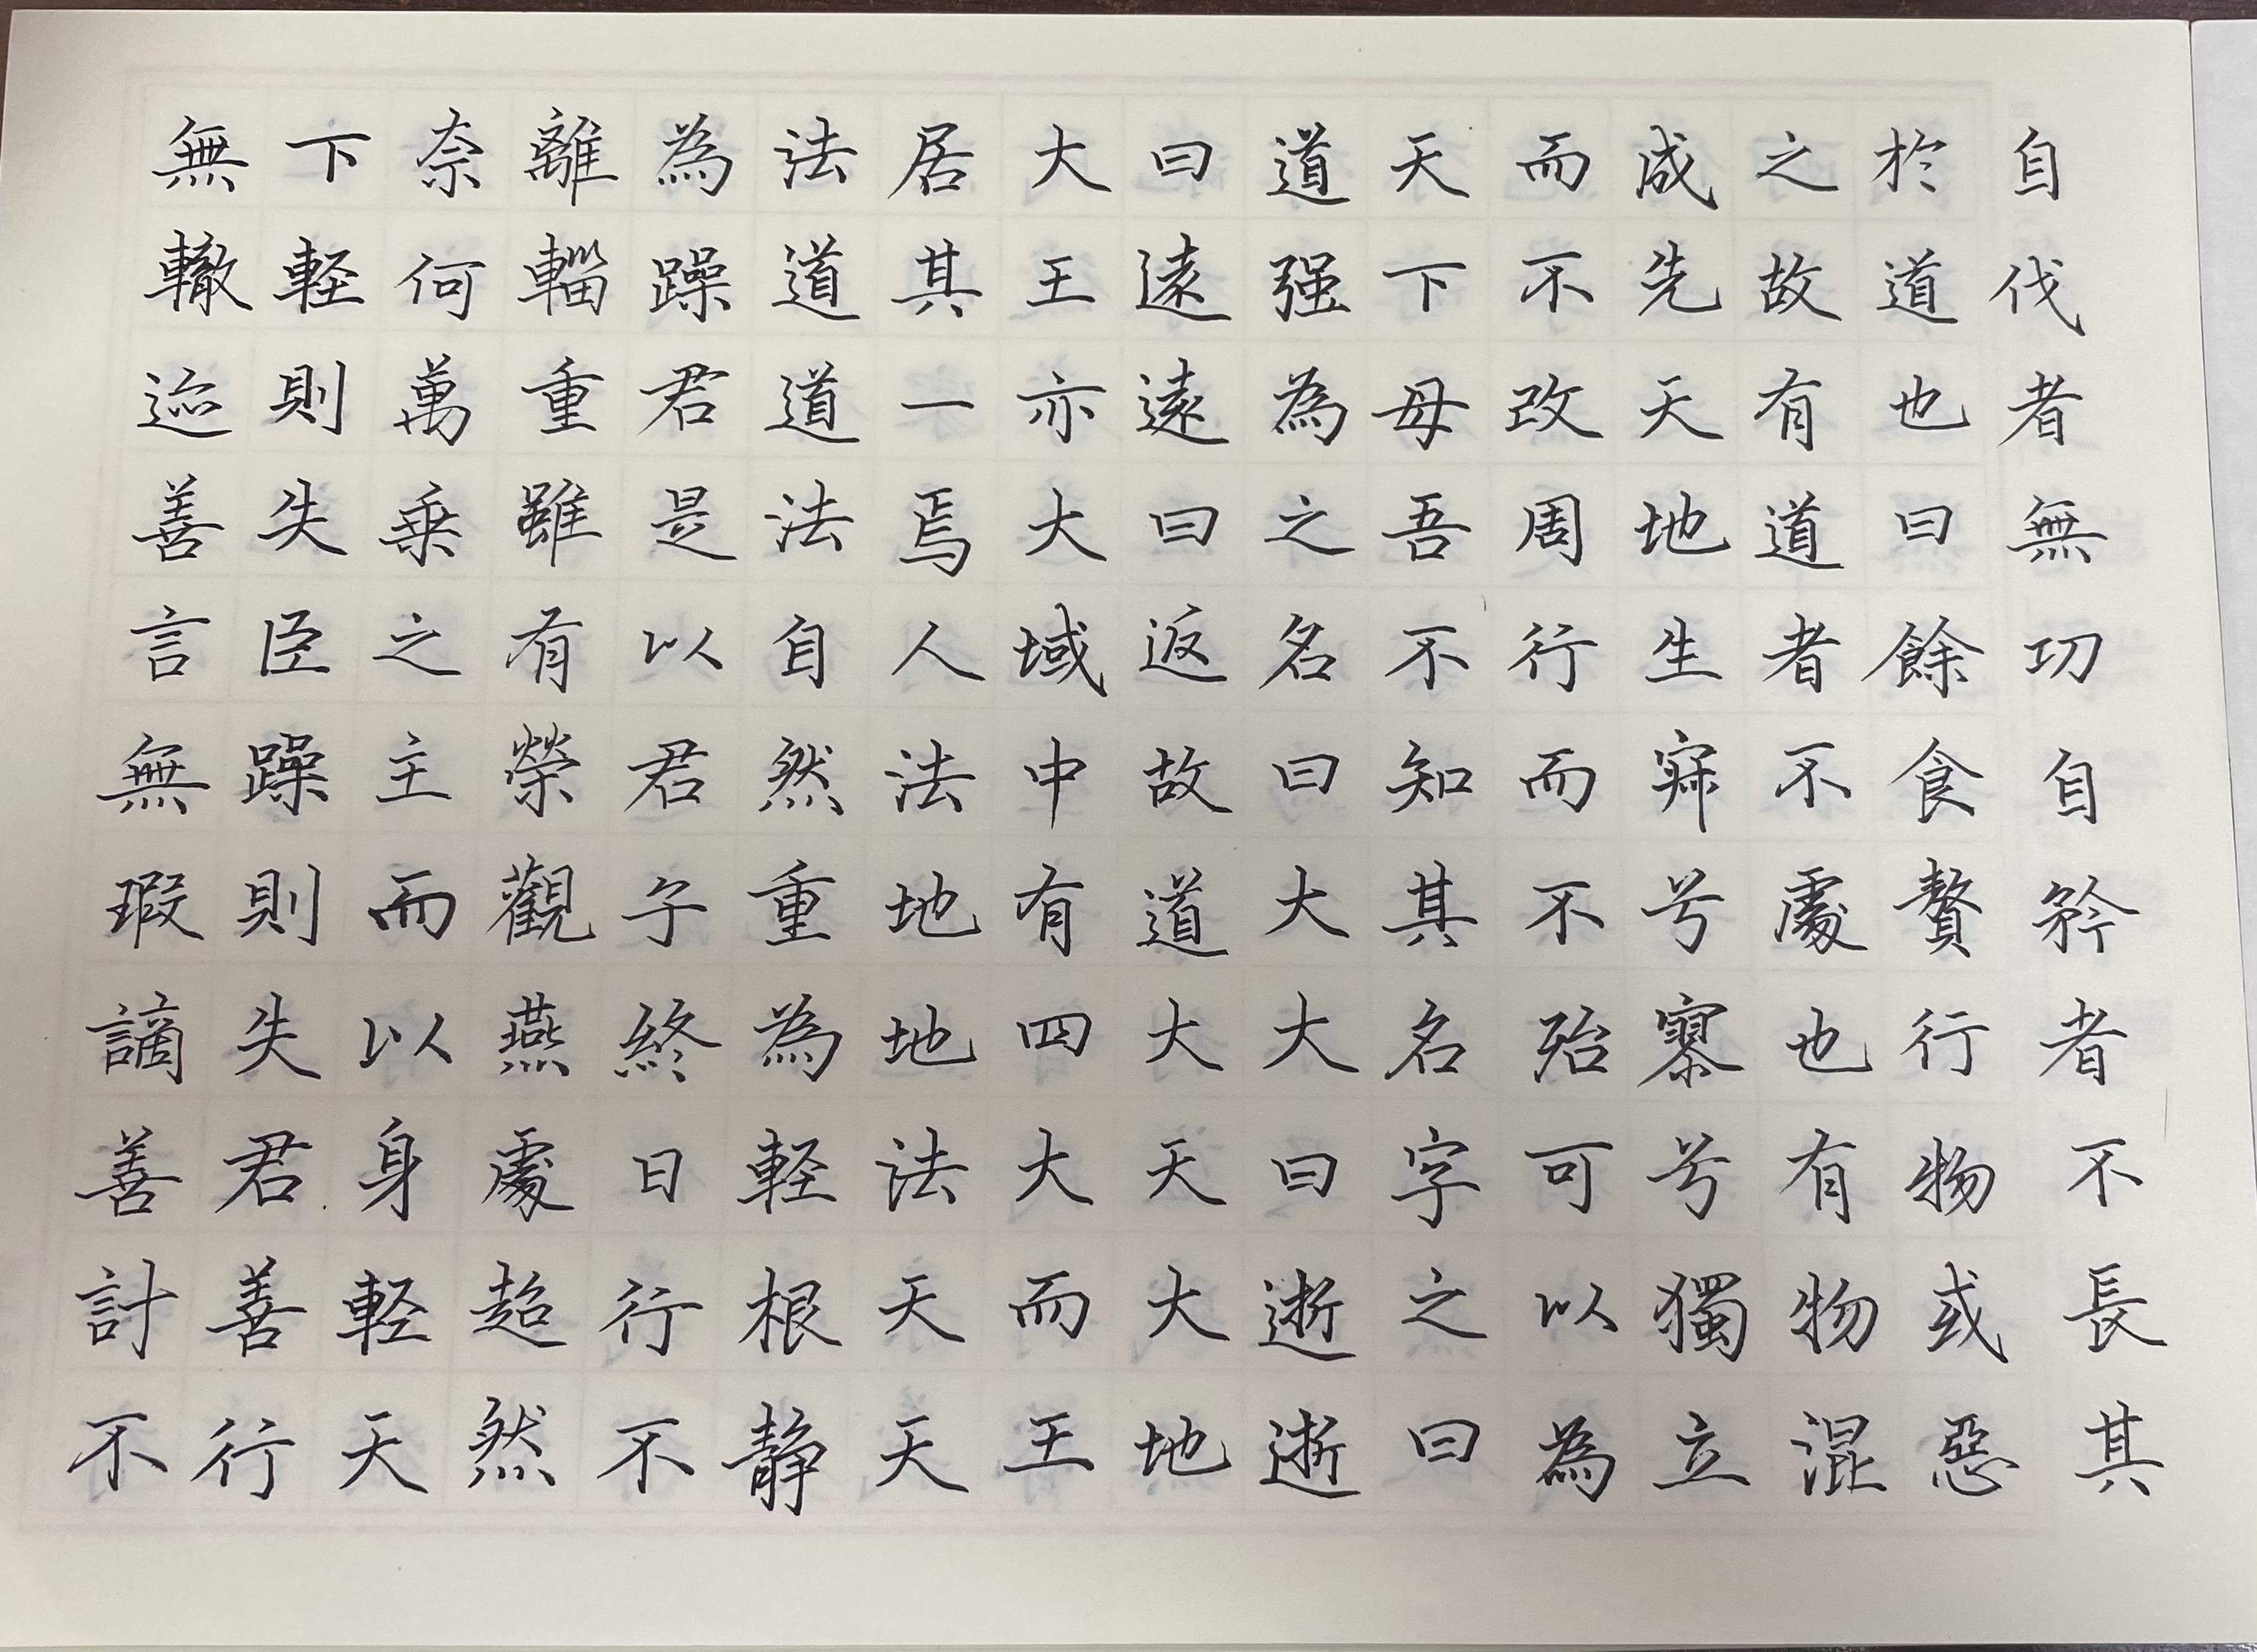 自伐者無功自矜者不長其
於道也曰餘食贅行物或惡
之故有道者不處也有物混
成先天地生寂兮寥兮獨立
而不改周行而不殆可以為
天下母吾不知其名字之曰
道强為之名曰大大曰逝逝
曰遠遠曰返故道大天大地
大王亦大域中有四大而王
居其一焉人法地地法天天
法道道法自然重為輕根静
為躁君是以君子終日行不
離輜重雖有榮觀燕處超然
奈何萬乗之主而以身軽天
下軽則失臣躁則失君善行
無轍迹善言無瑕謫善計不